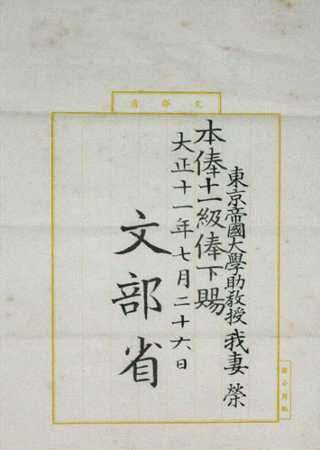 文部省
東京帝國大學助教授 我妻 榮
本俸十一級俸下賜
大正十一年七月二十六日
文部省